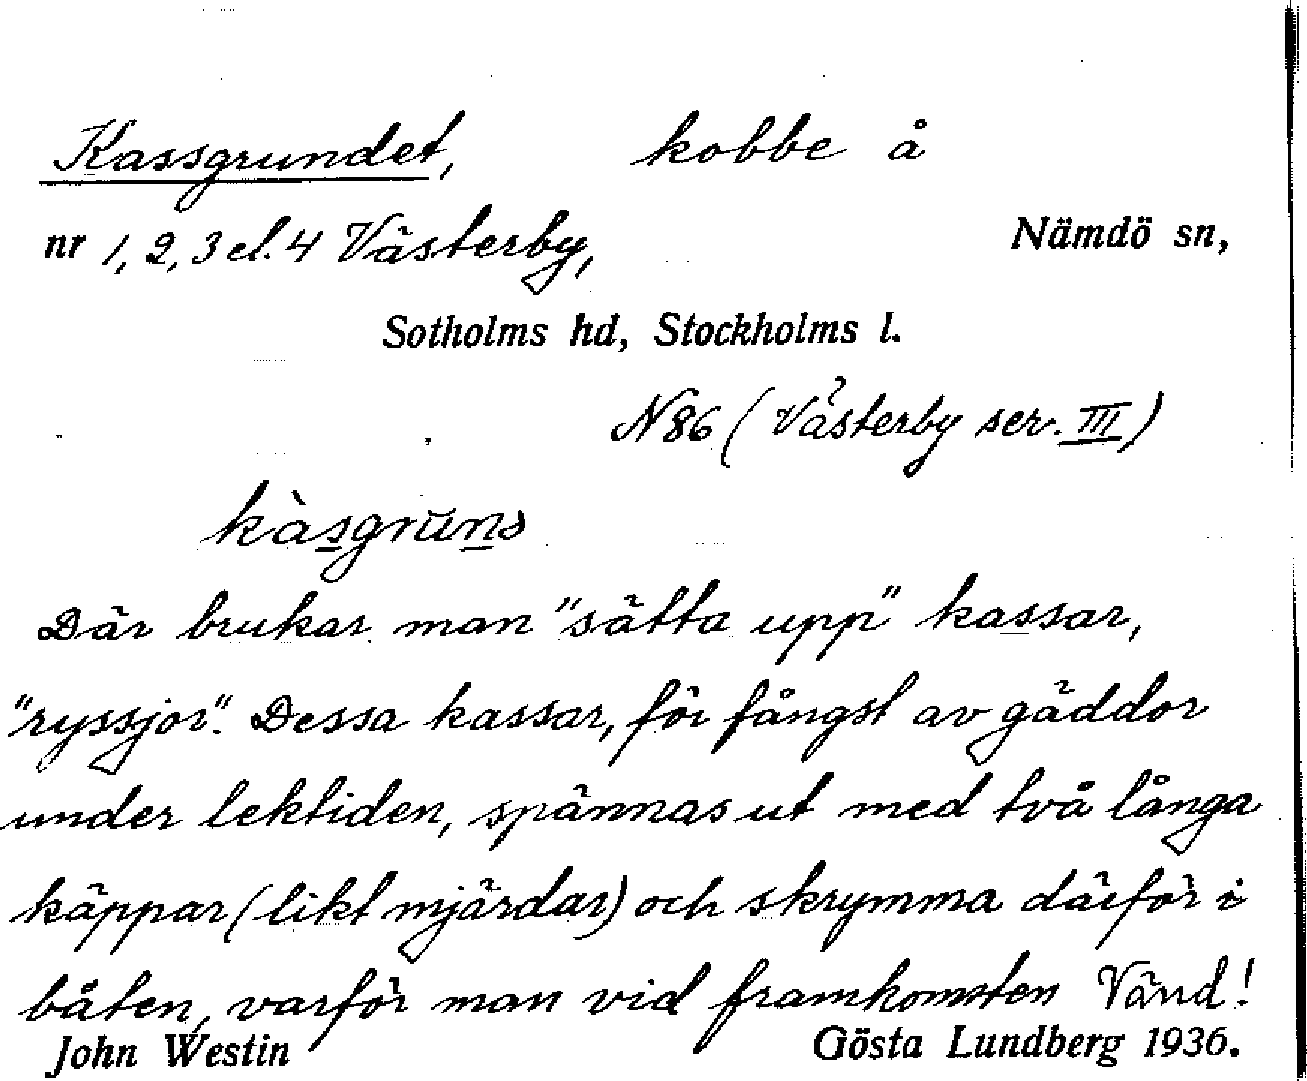 Kassgrundet, kobbe å
nr 1, 2, 3 el. 4 Västerby, Nämdö sn,
Sotholms hd, Stockholms l.
N 86 (Västerby ser. III)
kàsgrŭns
Där brukar man "sätta upp" kassar,
"ryssjor". Dessa kassar, för fångst av gäddor
under lektiden, spännas ut med två långa
käppar (likt mjärdar) och skrymma därför i
båten, varför man vid framkomsten Vänd!
John Westin Gösta Lundberg 1936.